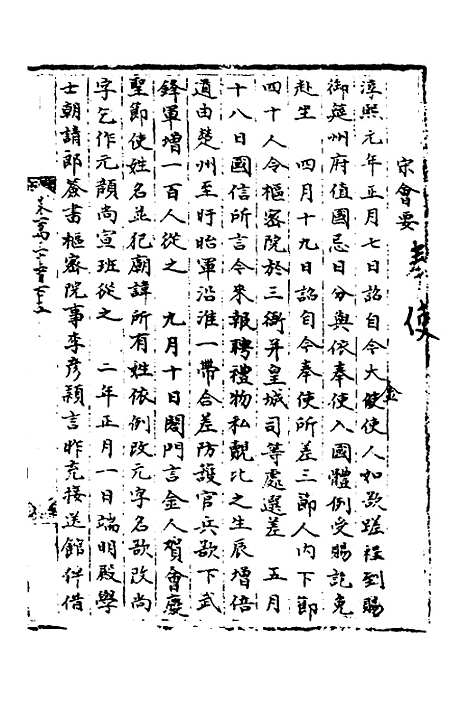 宋會要
奉使
淳熙元年正月七日詔自今大使使人如欲蹉程到賜
金
御筵州府值國忌日分與依奉使入國體例受賜訖免
赴坐 四月十九日詔自今奉使所差三節人內下節
四十人令樞密院於三衙并皇城司等處選差 五月
十八日國信所言今來報聘禮物私覿比之生辰增倍
道由楚州至盱眙軍沿淮一帶合差防護官兵欲下武
鋒軍增一百人從之 九月十日閤門言金人賀會慶
聖節使姓名並犯廟諱所有姓依例改元字名欲改尚
字乞作元顏尚宣班從之 二年正月一日端明殿學
士朝請郎簽書樞密院事李彥穎言昨充接送館伴借